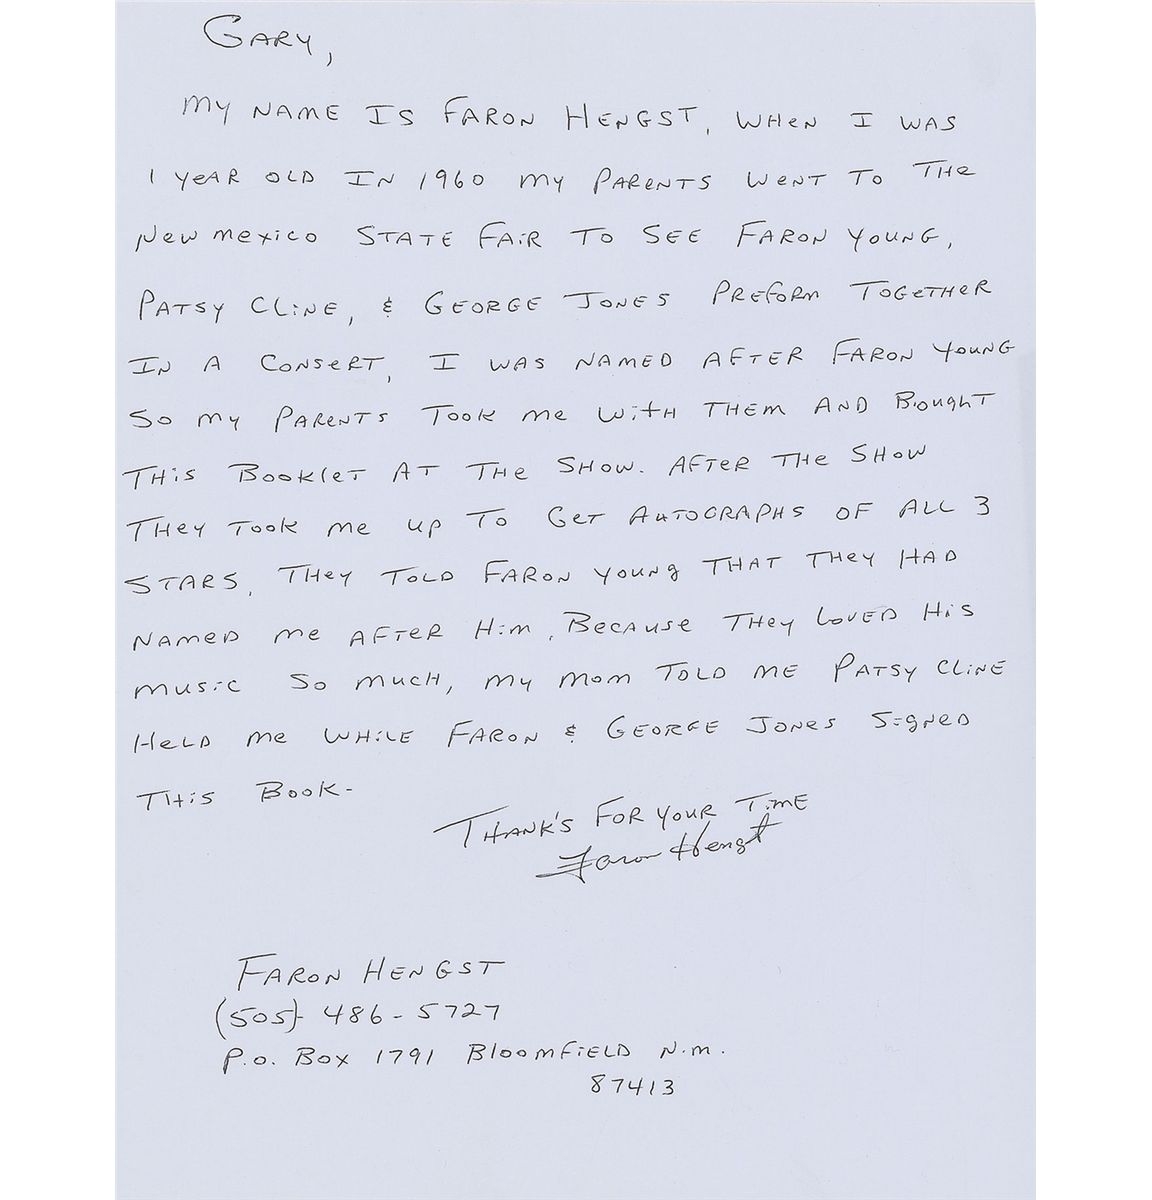 Gary,
My name is Faron Hengst, when I was
1 year old in 1960 my parents went to the
New Mexico State Fair to see Faron Young,
Patsy Cline, & George Jones preform together
in a consert, I was named after Faron Young
so my parents took me with them and bought
this booklet at the show. After the show
they took me up to get autographs of all 3
stars, they told Faron Young that they had
named me after him, because they loved his
music so much, my mom told me Patsy Cline
held me while Faron & George Jones signed
this book-
Thank's for your time
Faron Hengst
Faron Hengst
(505)-486-5727
P.O. Box 1791 Bloomfield N.M.
87413